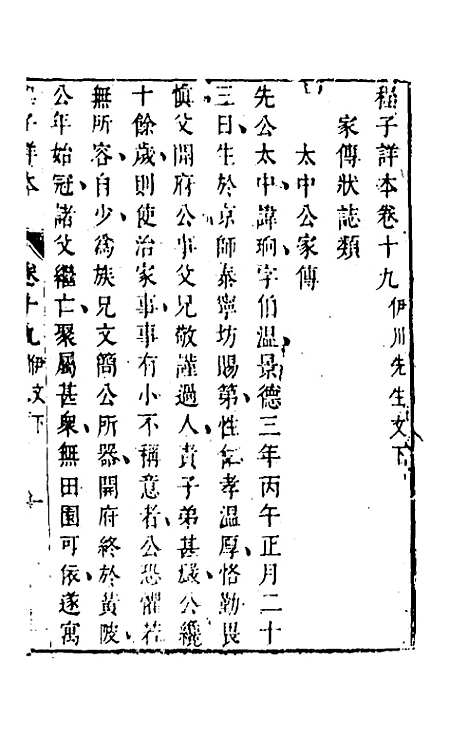 程子詳本卷十九 伊川先生文下
家傳狀誌類
太中公家傳
先公太中諱珦字伯溫景德三年丙午正月二十
三日生於京師泰寧坊賜第性仁孝溫厚恪勤畏
愼父開府公事父兄敬謹過人責子弟甚嚴公纔
十餘歲則使治家事事有小不稱意者公恐懼若
無所容自少爲族兄文簡公所器開府終於黃陂
公年始冠諸父繼亡聚屬甚衆無田園可依遂寓
子詳本 卷十九 伊文下 一